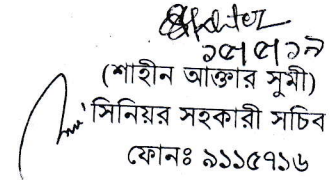 (শাহীন আক্তার সুমী)
সিনিয়র সহকারী সচিব
ফোনঃ ৯১১৫৭১৬